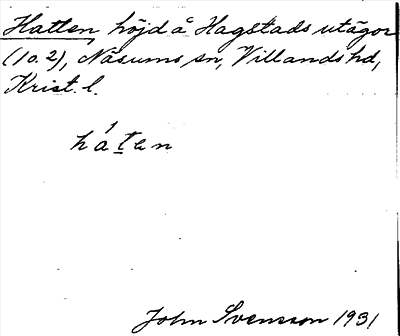 Hatten, höjd å Hagstads utägor
(10.2), Näsums sn, Villands hd,
Krist. l.
háten
John Svensson 1931